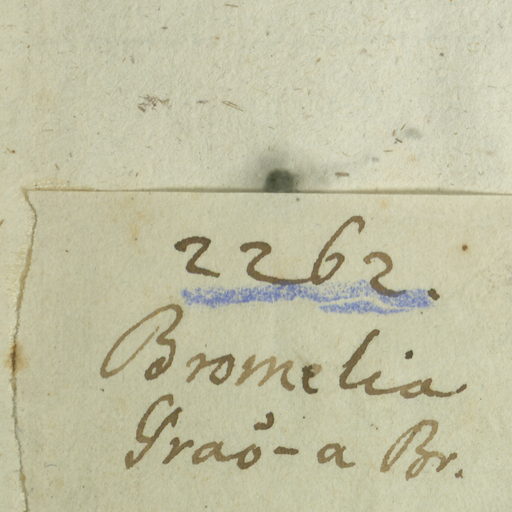 2262.
Bromelia
Graŏ-a Br.